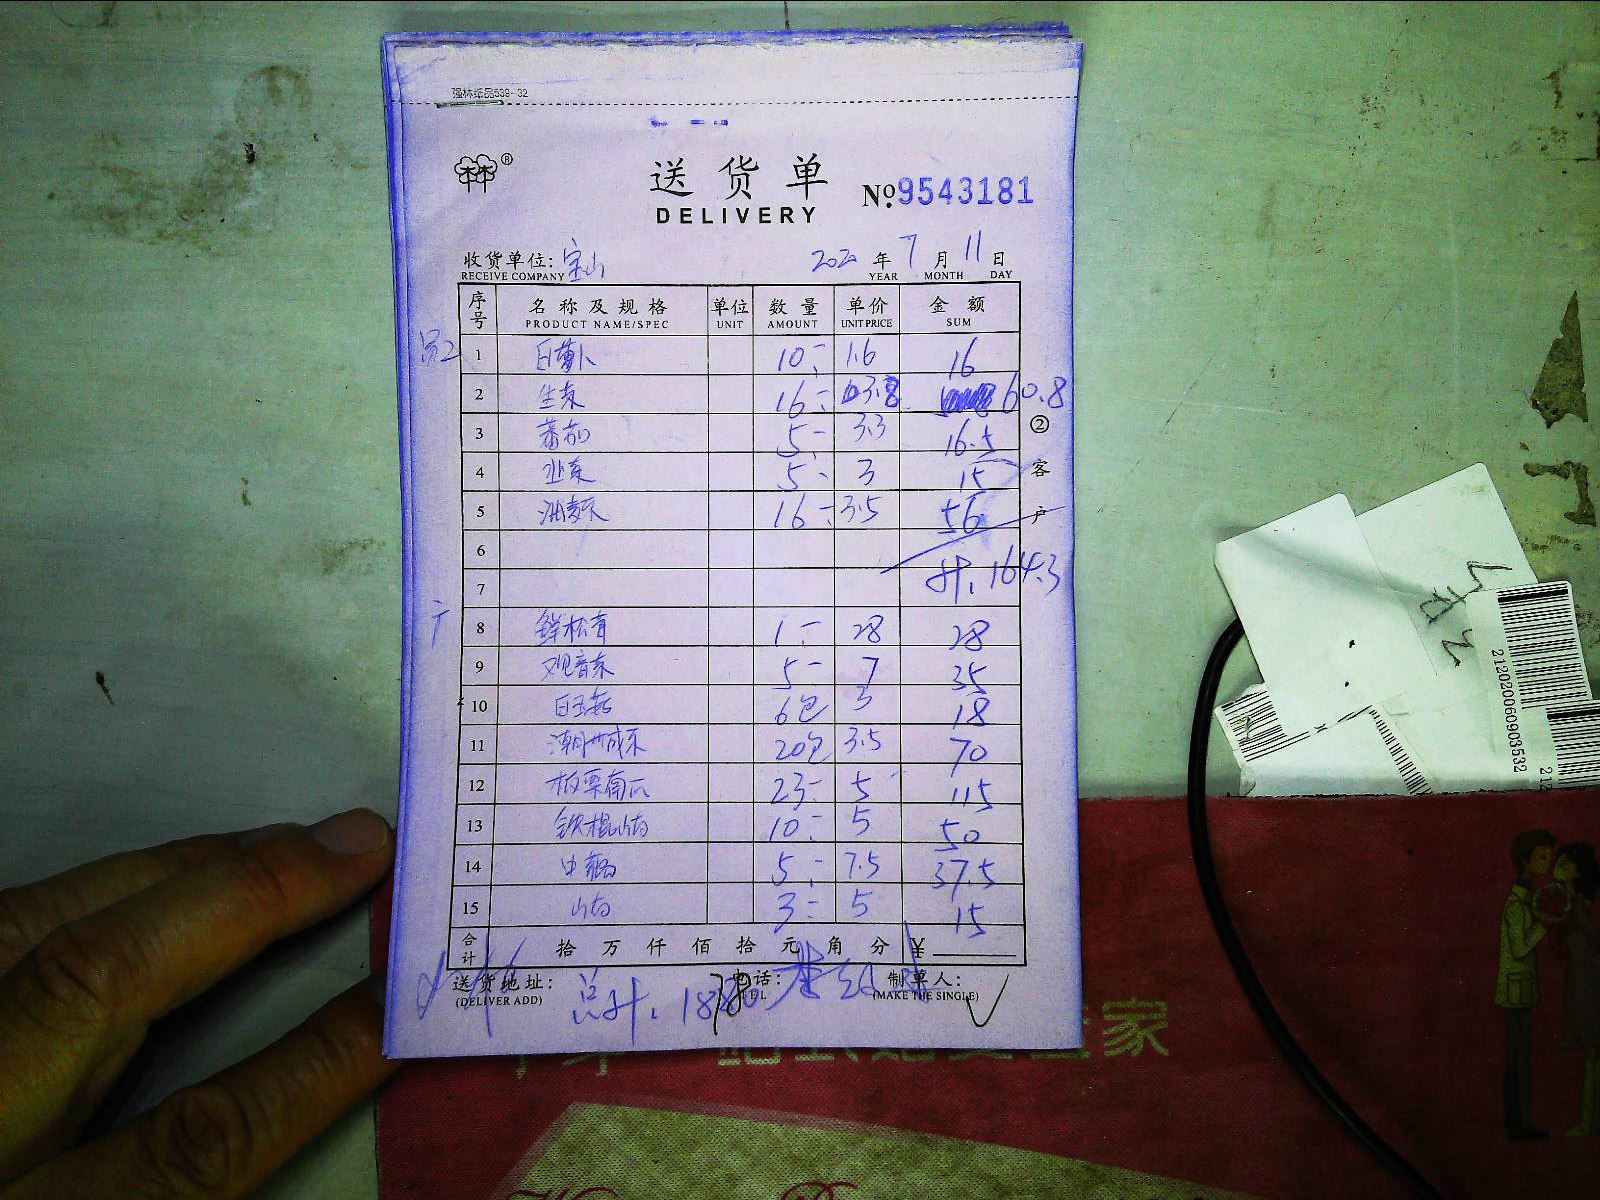 强林纸品539-32
林®
送货单 №9543181
DELIVERY
收货单位：宝山 2020 年 7 月 11 日
RECEIVE COMPANY YEAR MONTH DAY
序号 名称及规格 单位 数量 单价 金额
PRODUCT NAME/SPEC UNIT AMOUNT UNIT PRICE SUM
员2 1 白萝卜 10 1.6 16
2 生菜 16 3.8 60.8
3 蕃茄 5 3.3 16.5
4 韭菜 5 3 15
5 油麦菜 16 3.5 56
6
7 计、164.3
8 鲜松茸 1 28 28
9 观音菜 5 7 35
10 白玉菇 6包 3 18
11 潮州咸菜 20包 3.5 70
12 板栗南瓜 23 5 115
13 铁棍山药 10 5 50
14 中 5 7.5 37.5
15 山药 3 5 15
②客户
合计 拾 万 仟 佰 拾 元 角 分 ¥
送货地址： 电话： 制单人：
(DELIVER ADD) TEL (MAKE THE SINGLE)
总计、
212020060903532
212
家